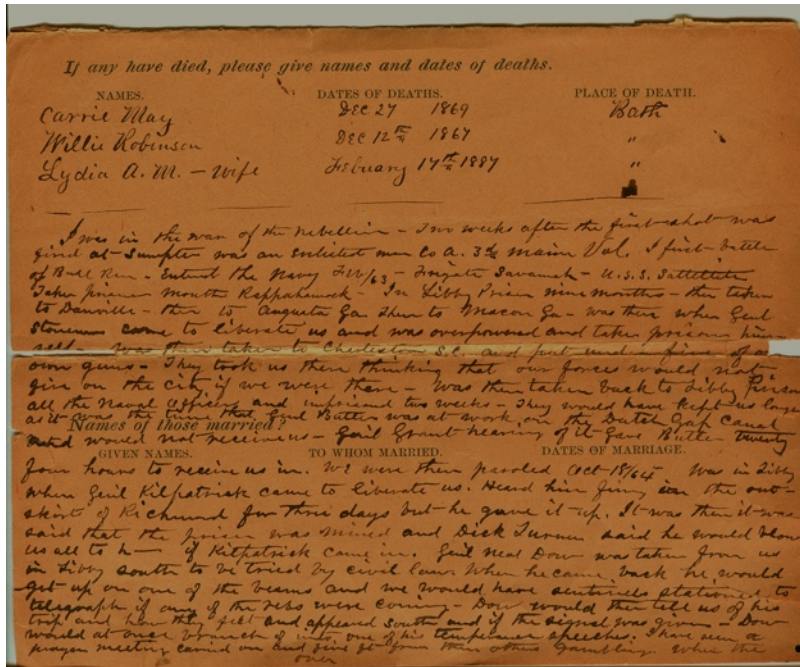 If any have died, please give names and dates of deaths.
NAMES. DATES OF DEATHS. PLACE OF DEATH.
Carrie May Dec 27 1869 Bath
Willie Robinson Dec 12th 1867 "
Lydia A. M. - wife February 17th 1887 "
I was in the war of the rebellion - Two weeks after the first shot was
fired at Sumpter was an Enlisted man Co A. 3d Maine Vol. I first battle
of Bull Run - Entered the Navy Feb/63 - Frigate Savannah - U.S.S. Sattellite
Taken prisoner mouth Rappahannock - In Libby Prison nine months - then taken
to Danville - then to Augusta Ga then to Macon Ga - was there when Genl
Stoneman came to liberate us and was overpowered and taken prisoner him-
self - was then taken to Charleston S.C. and put under fire of our
own guns - They took us there thinking that our forces would not
fire on the city if we were there - Was then taken back to Libby Prison
all the naval officers and imprisoned two weeks - They would have kept us longer
as it was the time that Genl Butler was at work on the Dutch Gap Canal
Names of those married?
and would not receive us - Genl Grant hearing of it gave Butler twenty
GIVEN NAMES. TO WHOM MARRIED. DATES OF MARRIAGE.
four hours to receive us in. We were then paroled Oct 18/64 Was in Libby
when Genl Kilpatrick came to liberate us. Heard him firing in the out-
skirt of Richmond for three days but he gave it up. It was then it was
said that the prison was mined and Dick Turner said he would blow
us all to h— if Kilpatrick came in. Genl Neal Dow was taken from us
in Libby south to be tried by civil law. When he came back he would
get up on one of the beams and we would have sentinels stationed to
telegraph if any of the rebs were coming - Dow would then tell us of his
trip and how they felt and appeared south and if the signal was given - Dow
would at once branch off into one of his temperance speeches. I have seen a
prayer meeting carried on and five ft from them others gambling. When the
over